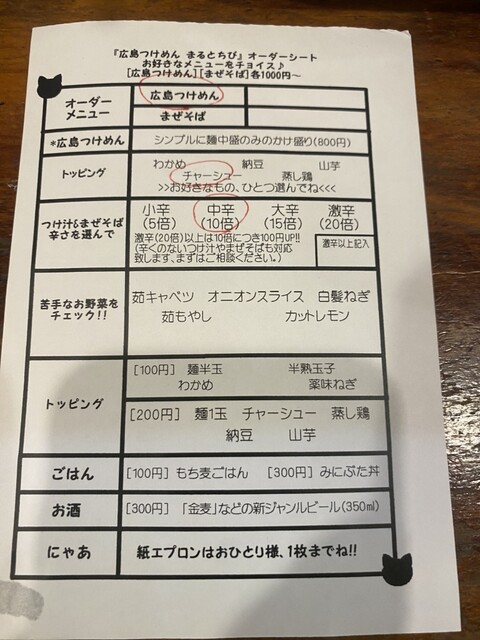 『広島つけめん まるとちび』オーダーシート
お好きなメニューをチョイス♪
[広島つけめん][まぜそば]各1000円～
オーダーメニュー
広島つけめん
まぜそば
*広島つけめん
シンプルに麺中盛のみのかけ盛り(800円)
トッピング
わかめ 納豆 山芋
チャーシュー 蒸し鶏
>>お好きなもの、ひとつ選んでね<<<
つけ汁&まぜそば
辛さを選んで
小辛 中辛 大辛 激辛
(5倍) (10倍) (15倍) (20倍)
激辛(20倍)以上は10倍につき100円UP!!
(辛くのないつけ汁やまぜそばも対応
致します、まずはご相談ください。)
激辛以上記入
苦手なお野菜を
チェック!!
茹キャベツ オニオンスライス 白髪ねぎ
茹もやし カットレモン
トッピング
[100円] 麺半玉 半熟玉子
わかめ 薬味ねぎ
[200円] 麺1玉 チャーシュー 蒸し鶏
納豆 山芋
ごはん
[100円] もち麦ごはん [300円] みにぶた丼
お酒
[300円] 「金麦」などの新ジャンルビール(350ml)
にゃあ
紙エプロンはおひとり様、1枚までね!!